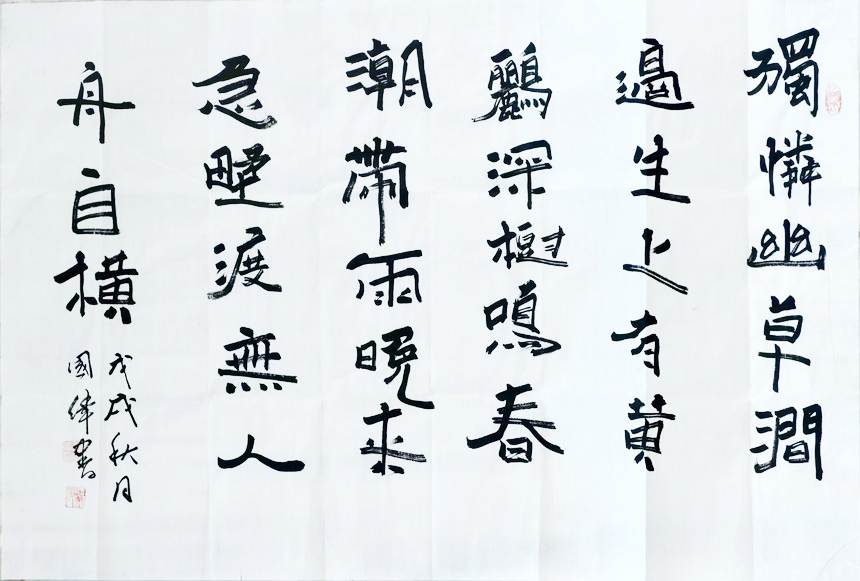 獨憐幽草澗
邊生上有黃
鸝深樹鳴春
潮帶雨晚來
急野渡無人
舟自橫
戊戌秋月
國偉書